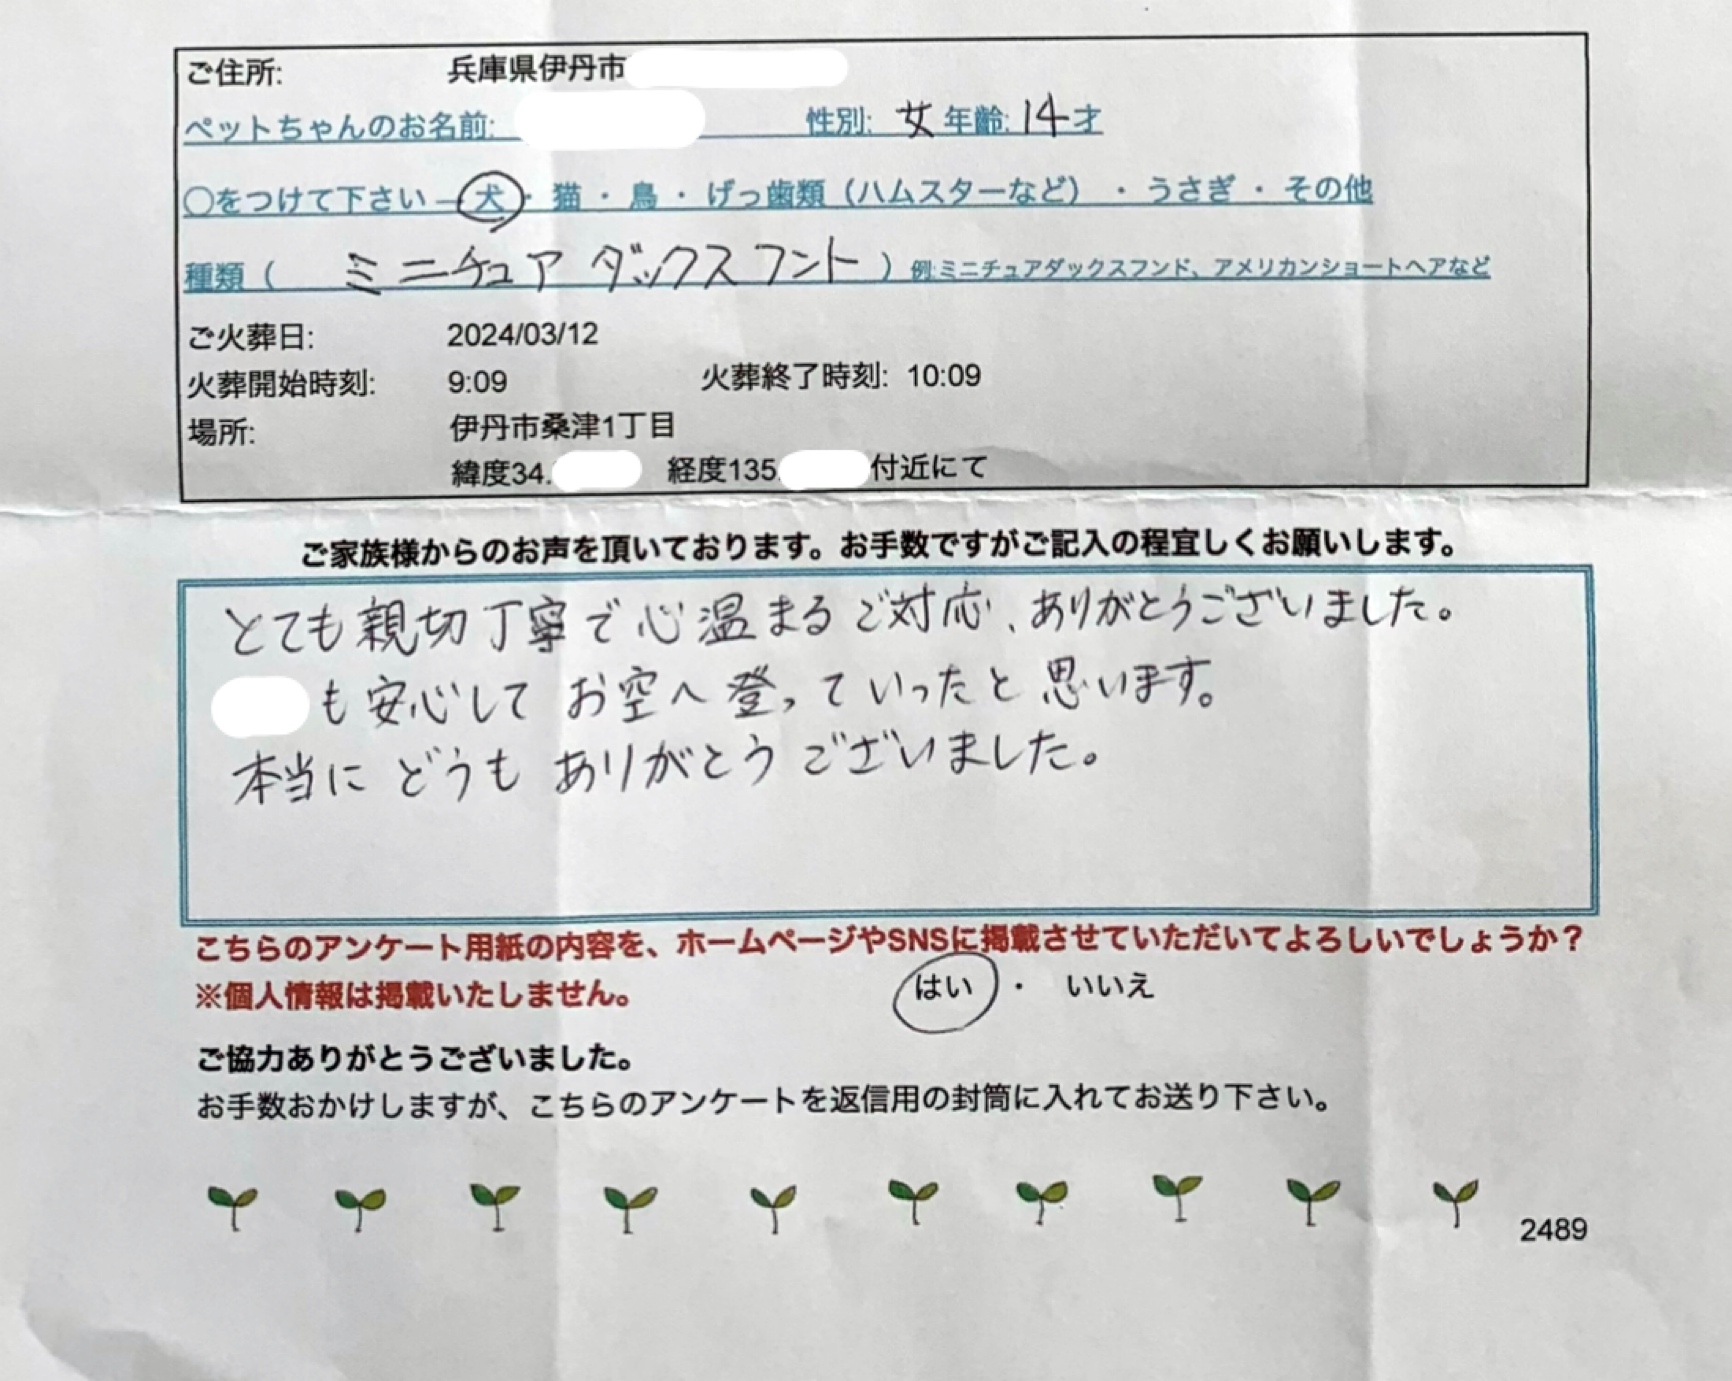 ご住所: 兵庫県伊丹市
ペットちゃんのお名前: 性別: 女 年齢: 14才
○をつけて下さい – 犬 ・ 猫 ・ 鳥 ・ げっ歯類（ハムスターなど） ・ うさぎ ・ その他
種類（ ミニチュアダックスフント ）例:ミニチュアダックスフンド、アメリカンショートヘアなど
ご火葬日: 2024/03/12
火葬開始時刻: 9:09 火葬終了時刻: 10:09
場所: 伊丹市桑津1丁目
緯度34. 経度135. 付近にて
ご家族様からのお声を頂いております。お手数ですがご記入の程宜しくお願いします。
とても親切丁寧で心温まるご対応、ありがとうございました。
も安心して お空へ登っていったと思います。
本当に どうも ありがとう ございました。
こちらのアンケート用紙の内容を、ホームページやSNSに掲載させていただいてよろしいでしょうか？
※個人情報は掲載いたしません。 はい ・ いいえ
ご協力ありがとうございました。
お手数おかけしますが、こちらのアンケートを返信用の封筒に入れてお送り下さい。
2489